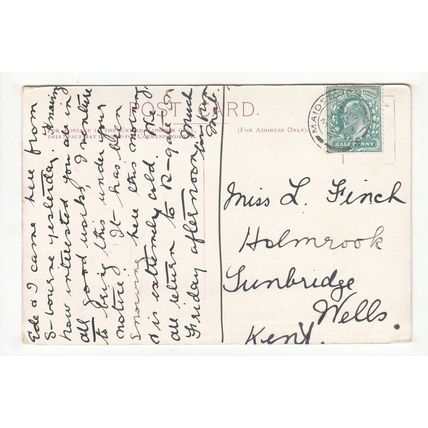 POST CARD.
(FOR ADDRESS ONLY).
HALF PENNY
MAIDS
Miss L. Finch
Holmrook
Tunbridge
Wells
Kent.
Ede & I came here from
S-bourne yesterday. Knowing
how interested you are in
all good works, I venture
to bring this under your
notice! It has been
Snowing here this morning
& is extremely cold. We
all return to R-gate on
Friday afternoon. Much
love